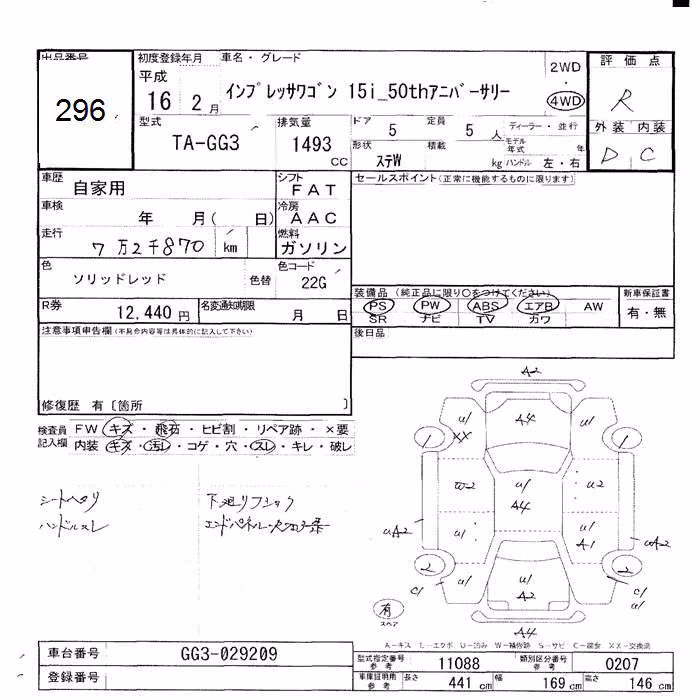 出品番号
296
初度登録年月
平成
16 2月
車名・グレード
インプレッサワゴン 15i_50thアニバーサリー
2WD
4WD
評価点
R
外装 内装
D C
型式
TA-GG3
排気量
1493
CC
ドア
5
定員
5 人
ディーラー・並行
形状
ステW
積載
kg
モデル年式
年
ハンドル 左・右
車歴
自家用
シフト
FAT
車検
年 月( 日)
冷房
AAC
走行
7万2千870 km
燃料
ガソリン
色
ソリッドレッド
色替
色コード
22G
R券
12,440円
名変通知期限
月 日
セールスポイント(正常に機能するものに限ります)
装備品(純正品に限り○をつけてください)
PS PW ABS エアB AW
SR ナビ TV カワ
新車保証書
有・無
後日品
注意事項申告欄(不具合内容等は具体的に記入して下さい)
修復歴 有〔箇所 〕
検査員記入欄
FW キズ・飛石・ヒビ割・リペア跡・×要
内装 キズ・汚レ・コゲ・穴・スレ・キレ・破レ
シートヘタリ
ハンドルスレ
下廻リフショク
A2
U1
A4
U1
XX
W2
U1
A4
U2
U1
U1
A1
UA2
UA2
2
2
C1
U1
U1
A2
U1
C1
U1
A4
有
スペア
A-キズ E-エクボ U-凹み W-補修跡 S-サビ C-腐食 XX-交換済
車台番号
GG3-029209
登録番号
型式指定番号
参考
11088
類別区分番号
参考
0207
車庫証明用
参考
長さ
441 cm
幅
169 cm
高さ
146 cm